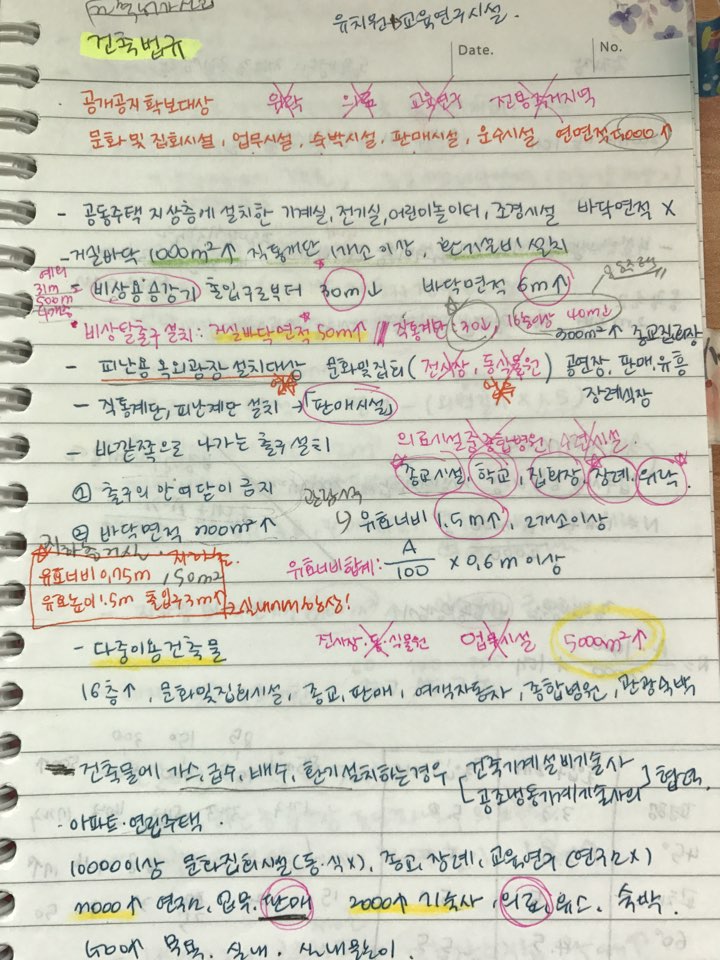 유치원 교육연구시설.
건축법규
Date. No.
공개공지 확보대상 위락 의료 교육연구 전용주거지역
문화 및 집회시설, 업무시설, 숙박시설, 판매시설, 운수시설 연면적 5000↑
- 공동주택 지상층에 설치한 기계실, 전기실, 어린이놀이터, 조경시설 바닥면적 X
- 거실바닥 1000m²↑ 직통계단 1개소 이상, 환기설비 설치
예외
31m
500m
4개층
- 비상용승강기 출입구로부터 30m↓ 바닥면적 6m↑
* 비상탈출구 설치: 거실바닥면적 50m↑ 직통계단 30↓, 16층이상 40m↓
300m²↑ 종교집회장
- 피난용 옥외광장 설치대상 문화밎집회 (전시장, 동식물원) 공연장, 판매, 유흥
장례식장
- 직통계단, 피난계단 설치 → 판매시설
- 바깥쪽으로 나가는 출구 설치 의료시설 중 종합병원, 수련시설
종교시설, 학교, 집회장, 장례, 위락
① 출구의 안여닫이 금지 관람석
② 바닥면적 300m²↑ ↳ 유효너비 1.5m↑, 2개소이상
유효너비 0.75m, 50m²
유효너비합계: A/100 × 0.6m 이상
유효높이 1.5m 출입구 3m↑
- 다중이용건축물 전시장·동·식물원 업무시설 5000m²↑
16층↑, 문화밎집회시설, 종교, 판매, 여객자동차, 종합병원, 관광숙박
- 건축물에 가스, 급수, 배수, 환기설치하는경우 [건축기계설비기술사
[공조냉동기계기술사의] 협력.
· 아파트·연립주택.
10000이상 문화집회시설(동·식X), 종교, 장례, 교육연구 (연구소X)
3000↑ 연구소, 업무, 판매 2000↑ 기숙사, 의료, 유스, 숙박.
500↑ 목욕, 실내, 실내물놀이.